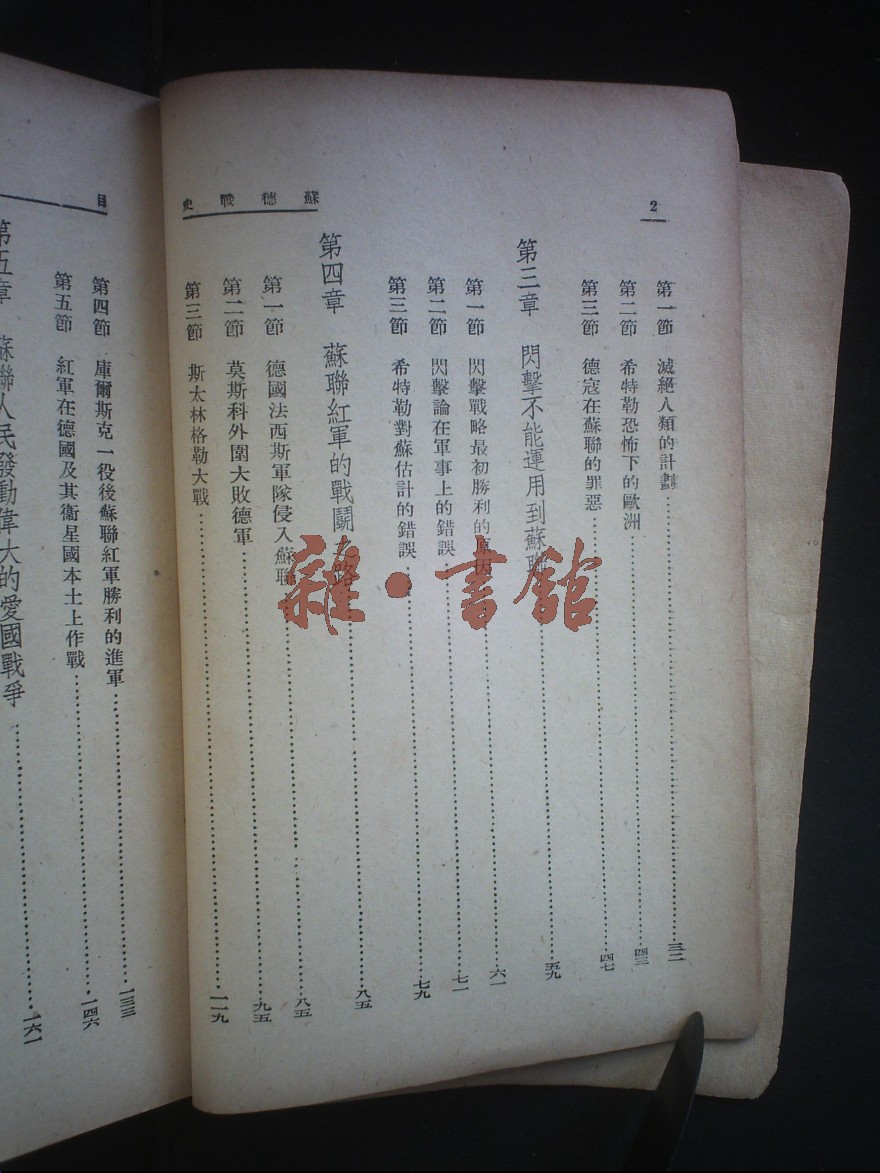 2
蘇德戰史
第一節 滅絕人類的計劃……三二
第二節 希特勒恐怖下的歐洲……四三
第三節 德寇在蘇聯的罪惡……四七
第三章 閃擊不能運用到蘇聯……五九
第一節 閃擊戰略最初勝利的原因……六一
第二節 閃擊論在軍事上的錯誤……七一
第三節 希特勒對蘇估計的錯誤……七九
第四章 蘇聯紅軍的戰鬭之路……八五
第一節 德國法西斯軍隊侵入蘇聯……八五
第二節 莫斯科外圍大敗德軍……九五
第三節 斯太林格勒大戰……一一九
目
第四節 庫爾斯克一役後蘇聯紅軍勝利的進軍……一三三
第五節 紅軍在德國及其衞星國本土上作戰……一四六
第五章 蘇聯人民發動偉大的愛國戰爭……一六一
雜·書館